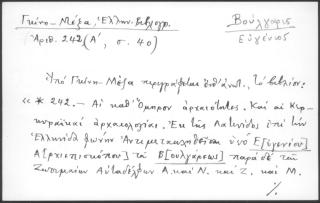 Γκίνη – Μέξα, Ἑλλην. Βιβλιογρ.
Ἀριθ. 242 (Α΄, σ. 40)
Βούλγαρις
Εὐγένιος
Ὑπὸ Γκίνη – Μέξα περιγράφεται ἐπὶ τὸ βιβλίον:
« * 242. – Αἱ καθ' Ὅμηρον ἀρχαιότητες. Καὶ αἱ Κερ-
κυραϊκαὶ ἀρχαιολογίαι. Ἐκ τῆς Λατινίδος ἐπὶ τὴν
Ἑλληνίδα φωνὴν Ἀντιμεταληφθεῖσαι ὑπὸ Ε[ὐγενίου]
Α[ρχιεπισκόπου] τοῦ Β[ουλγάρεως] παρὰ δὲ τῶν
Ζωσιμαίων Αὐταδέλφων Α. καὶ Ν. καὶ Ζ. καὶ Μ.
%.